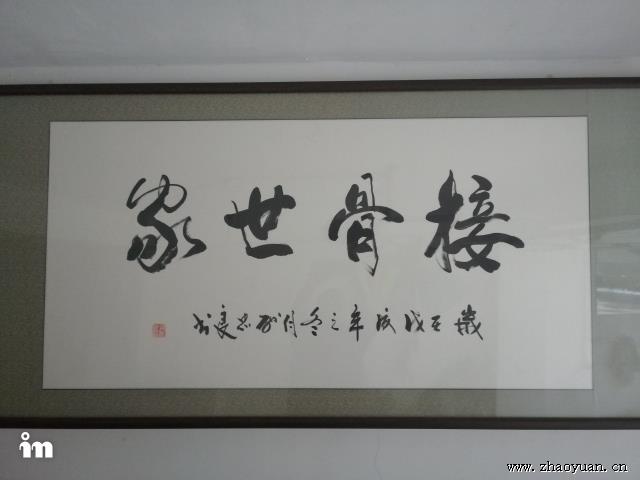 接骨世家
歲在戊戌年之冬月 忠良书
im
www.zhaoyuan.cn